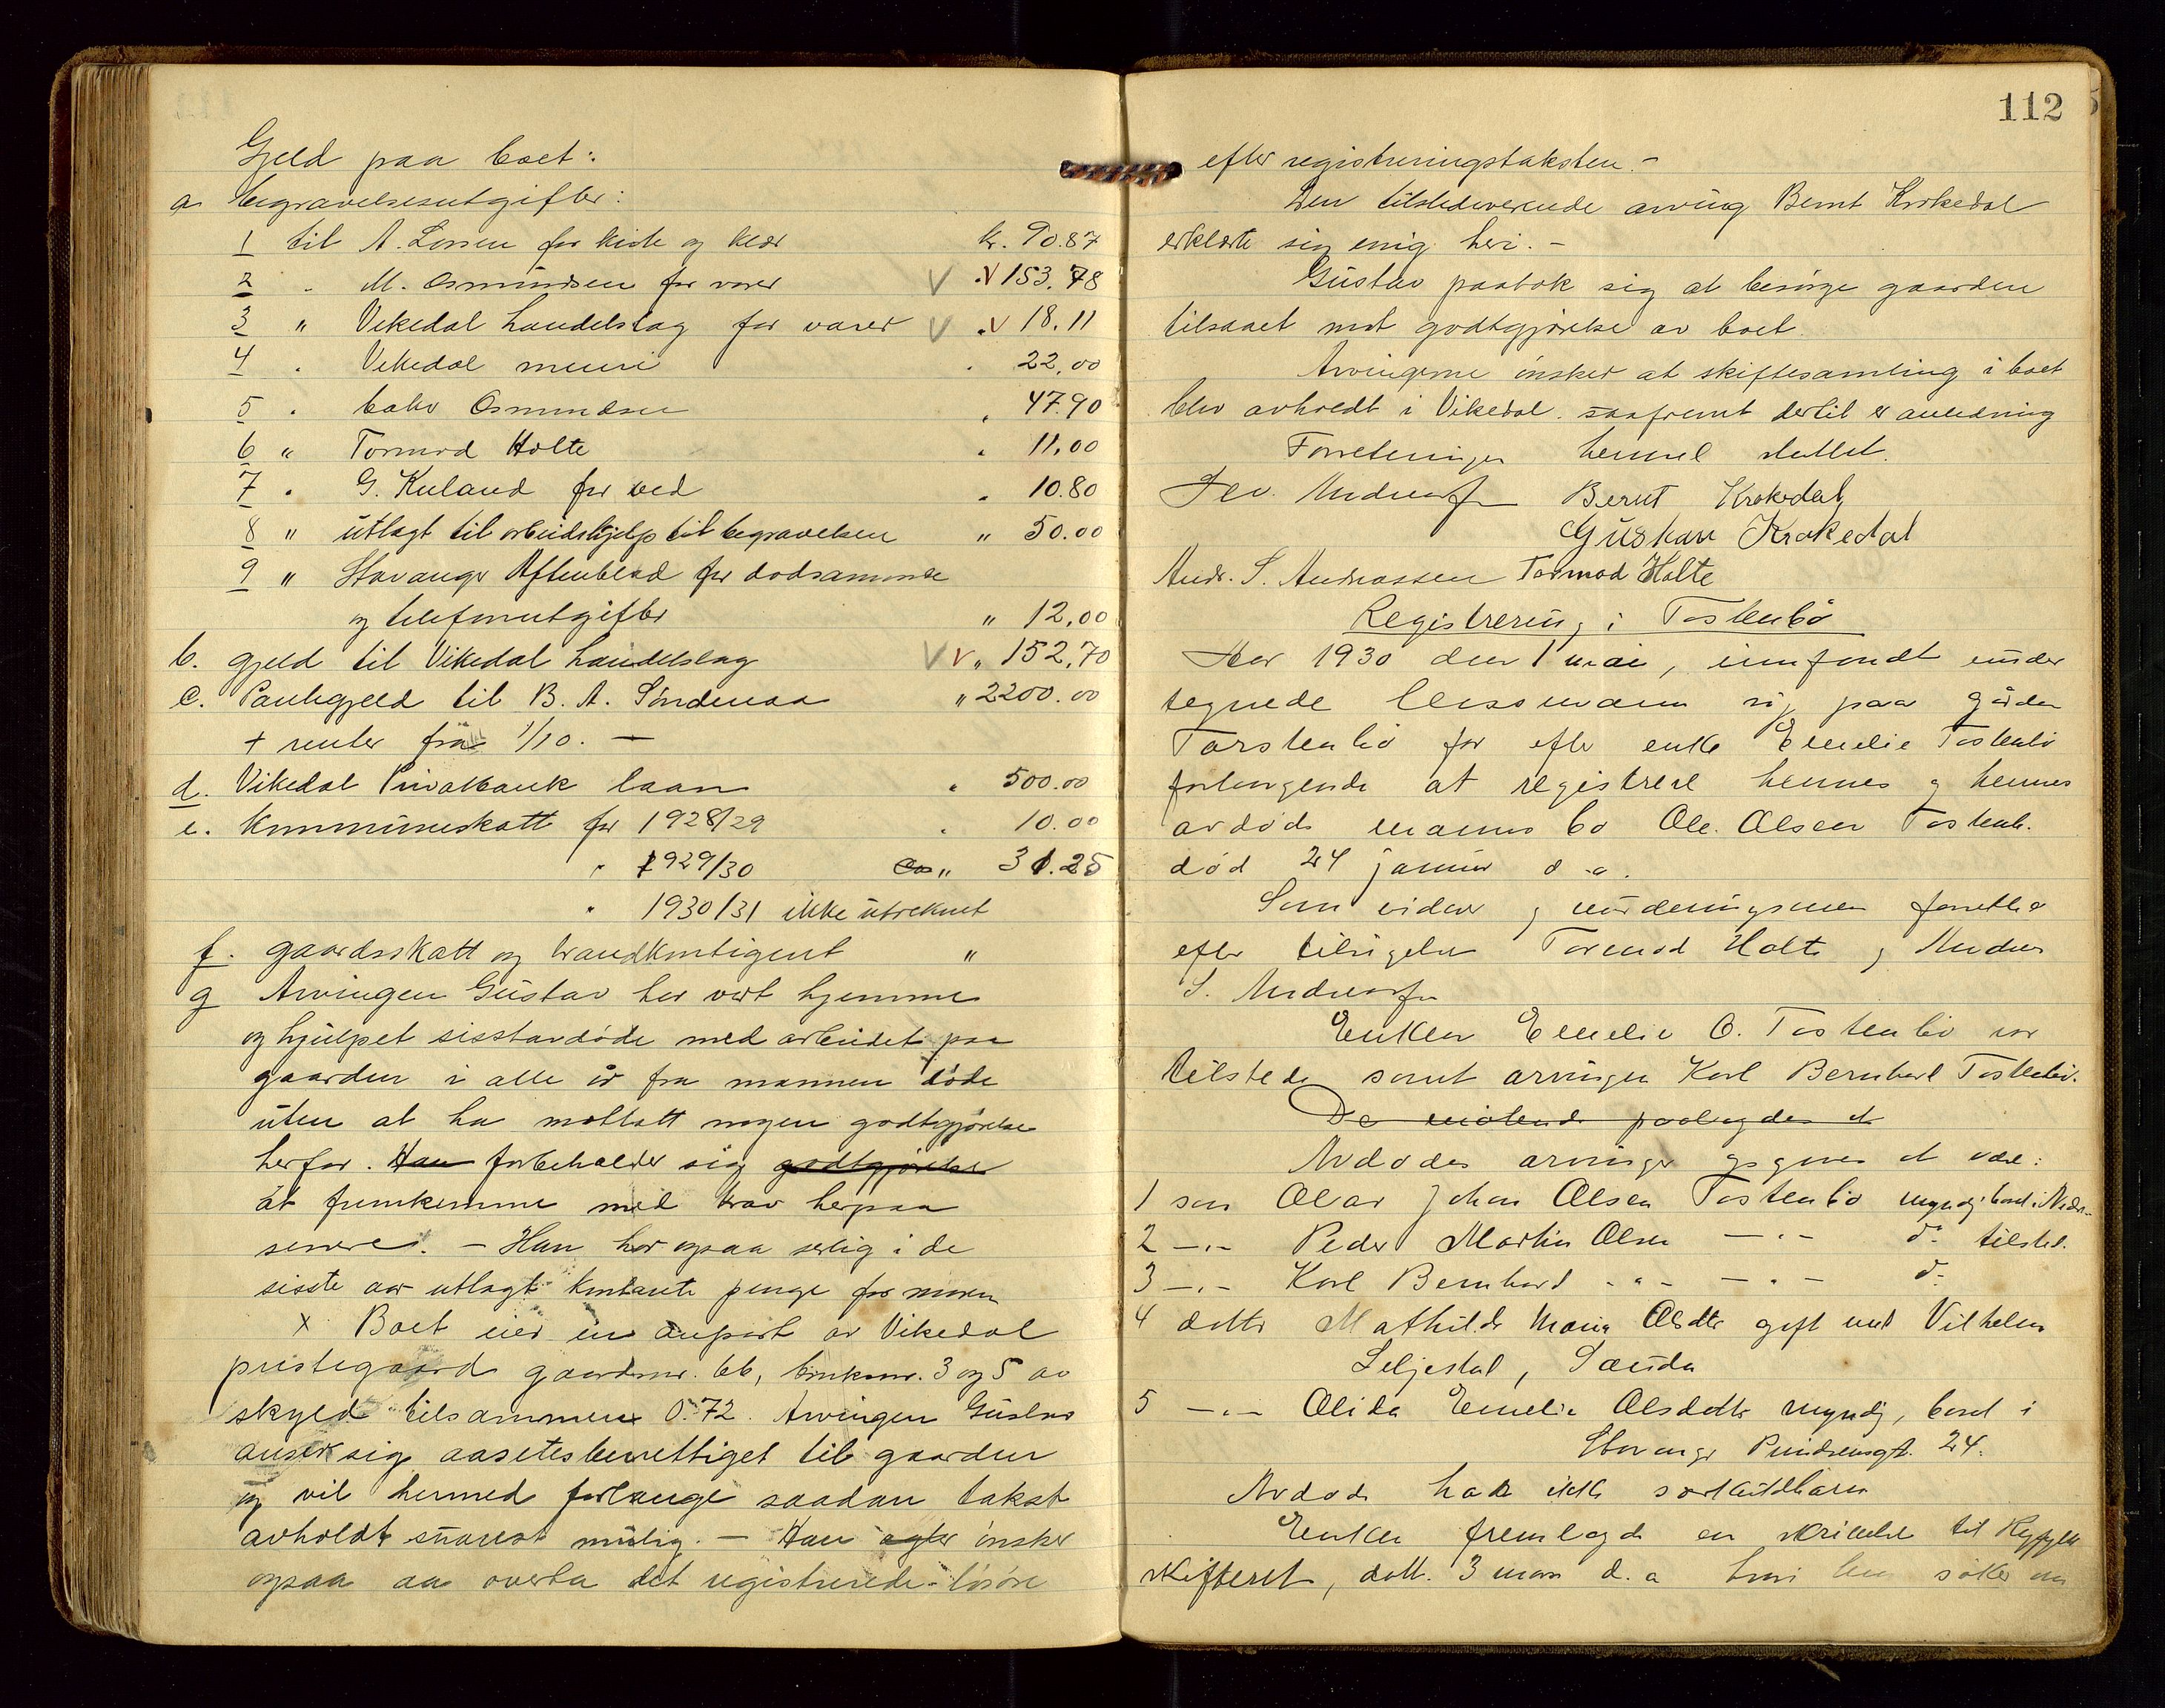 Gjeld paa boet:
a begravelsesutgifter:
1 til A. Lossen for kiste og klær kr. 90.87
2 " M. Osmundsen for varer V "V 153.78
3 " Vikedal handelslag for varer V "V 18.11
4 " Vikedal meieri " 22,00
5 " baker Osmundsen " 47.90
6 " Tormod Holte " 11,00
7 " G. Kuland for ved " 10.80
8 " utlagt til arbeidshjelp til begravelsen " 50.00
9 " Stavanger Aftenblad for dødsannonse
og telefonutgifter " 12,00
b. gjeld til Vikedal handelslag V V " 152,70
c. Pantegjeld til B. A. Søndenaa " 2200.00
+ renter fra 1/10. —
d. Vikedal Privatbank laan " 500.00
e. Kommuneskatt for 1928/29 " 10.00
" 1929/30 " 31.25
" 1930/31 ikke utreknet
f. gaardsskatt og brandkontigent "
g Arvingen Gustav har vært hjemme
og hjulpet sisstavdøde med arbeidet paa
gaarden i alle år fra mannen døde
uten at ha mottatt nogen godtgjørelse
herfor. Han forbeholder sig godtgjørelse
at fremkomme med krav herpaa
senere. – Han har ogsaa serlig i de
sisste aar utlagt kontante penge for moren
x Boet eier en anpart av Vikedal
prestegaard gaardsnr. 66, bruksnr. 3 og 5 av
skyld tilsammen 0.72. Arvingen Gustav
anser sig aasetesberettiget til gaarden
og vil hermed forlange saadan takst
avholdt snarest mulig. – Han agter ønsker
ogsaa aa overta det registrerede løsøre
112
efter registreringstaksten. –
Den tilstedeverende arving Bernt Krokedal
erklærte sig enig heri. –
Gustav paatok sig at besørge gaarden
tilsaaet mot godtgjørelse av boet.
Arvingerne ønsker at skiftesamling i boet
blev avholdt i Vikedal. saafremt dertil er anledning
Forretningen hermed sluttet.
Andreassen Bernt Krokedal
Gustav Krokedal
Andr. S. Andreassen Tormod Holte
Registrering i Tostenbø
Aar 1930 den 1 mai, innfandt under
tegnede lensmann sig paa gården
Torstenbø for efter enke Emelie Tostenbø
forlangende at registrere hennes og hennes
avdøde manns bo Ole Olsen Tostenb.
død 24 januar d.a.
Som vidner og vurderingsmenn forretter
efter tilsigelse Tormod Holte og Andreas
S. Andreassen
Enken Emelie O. Tostenbø var
tilstede samt arvingen Karl Bernhard Tostenbø.
De møtende paalagdes at
Avdødes arvinger opgives at være:
1 søn Olav Johan Olsen Tostenbø myndig bosat i
2 –"– Peder Martin Olsen –"– do tilsted.
3 –"– Karl Bernhard –"– –"– do
4 datter Mathilde Maria Olsdtr gift med Vilhelm
Liljestøl, Sauda
5 –"– Olida Emelie Olsdatter myndig, bosat i
Stavanger 24.
Avdøde hadde ikke særkuldbarn
Enken fremlagde en skrivelse til Ryfylke
skifteret, datt. 3 mars d.a. hvori hun søker om